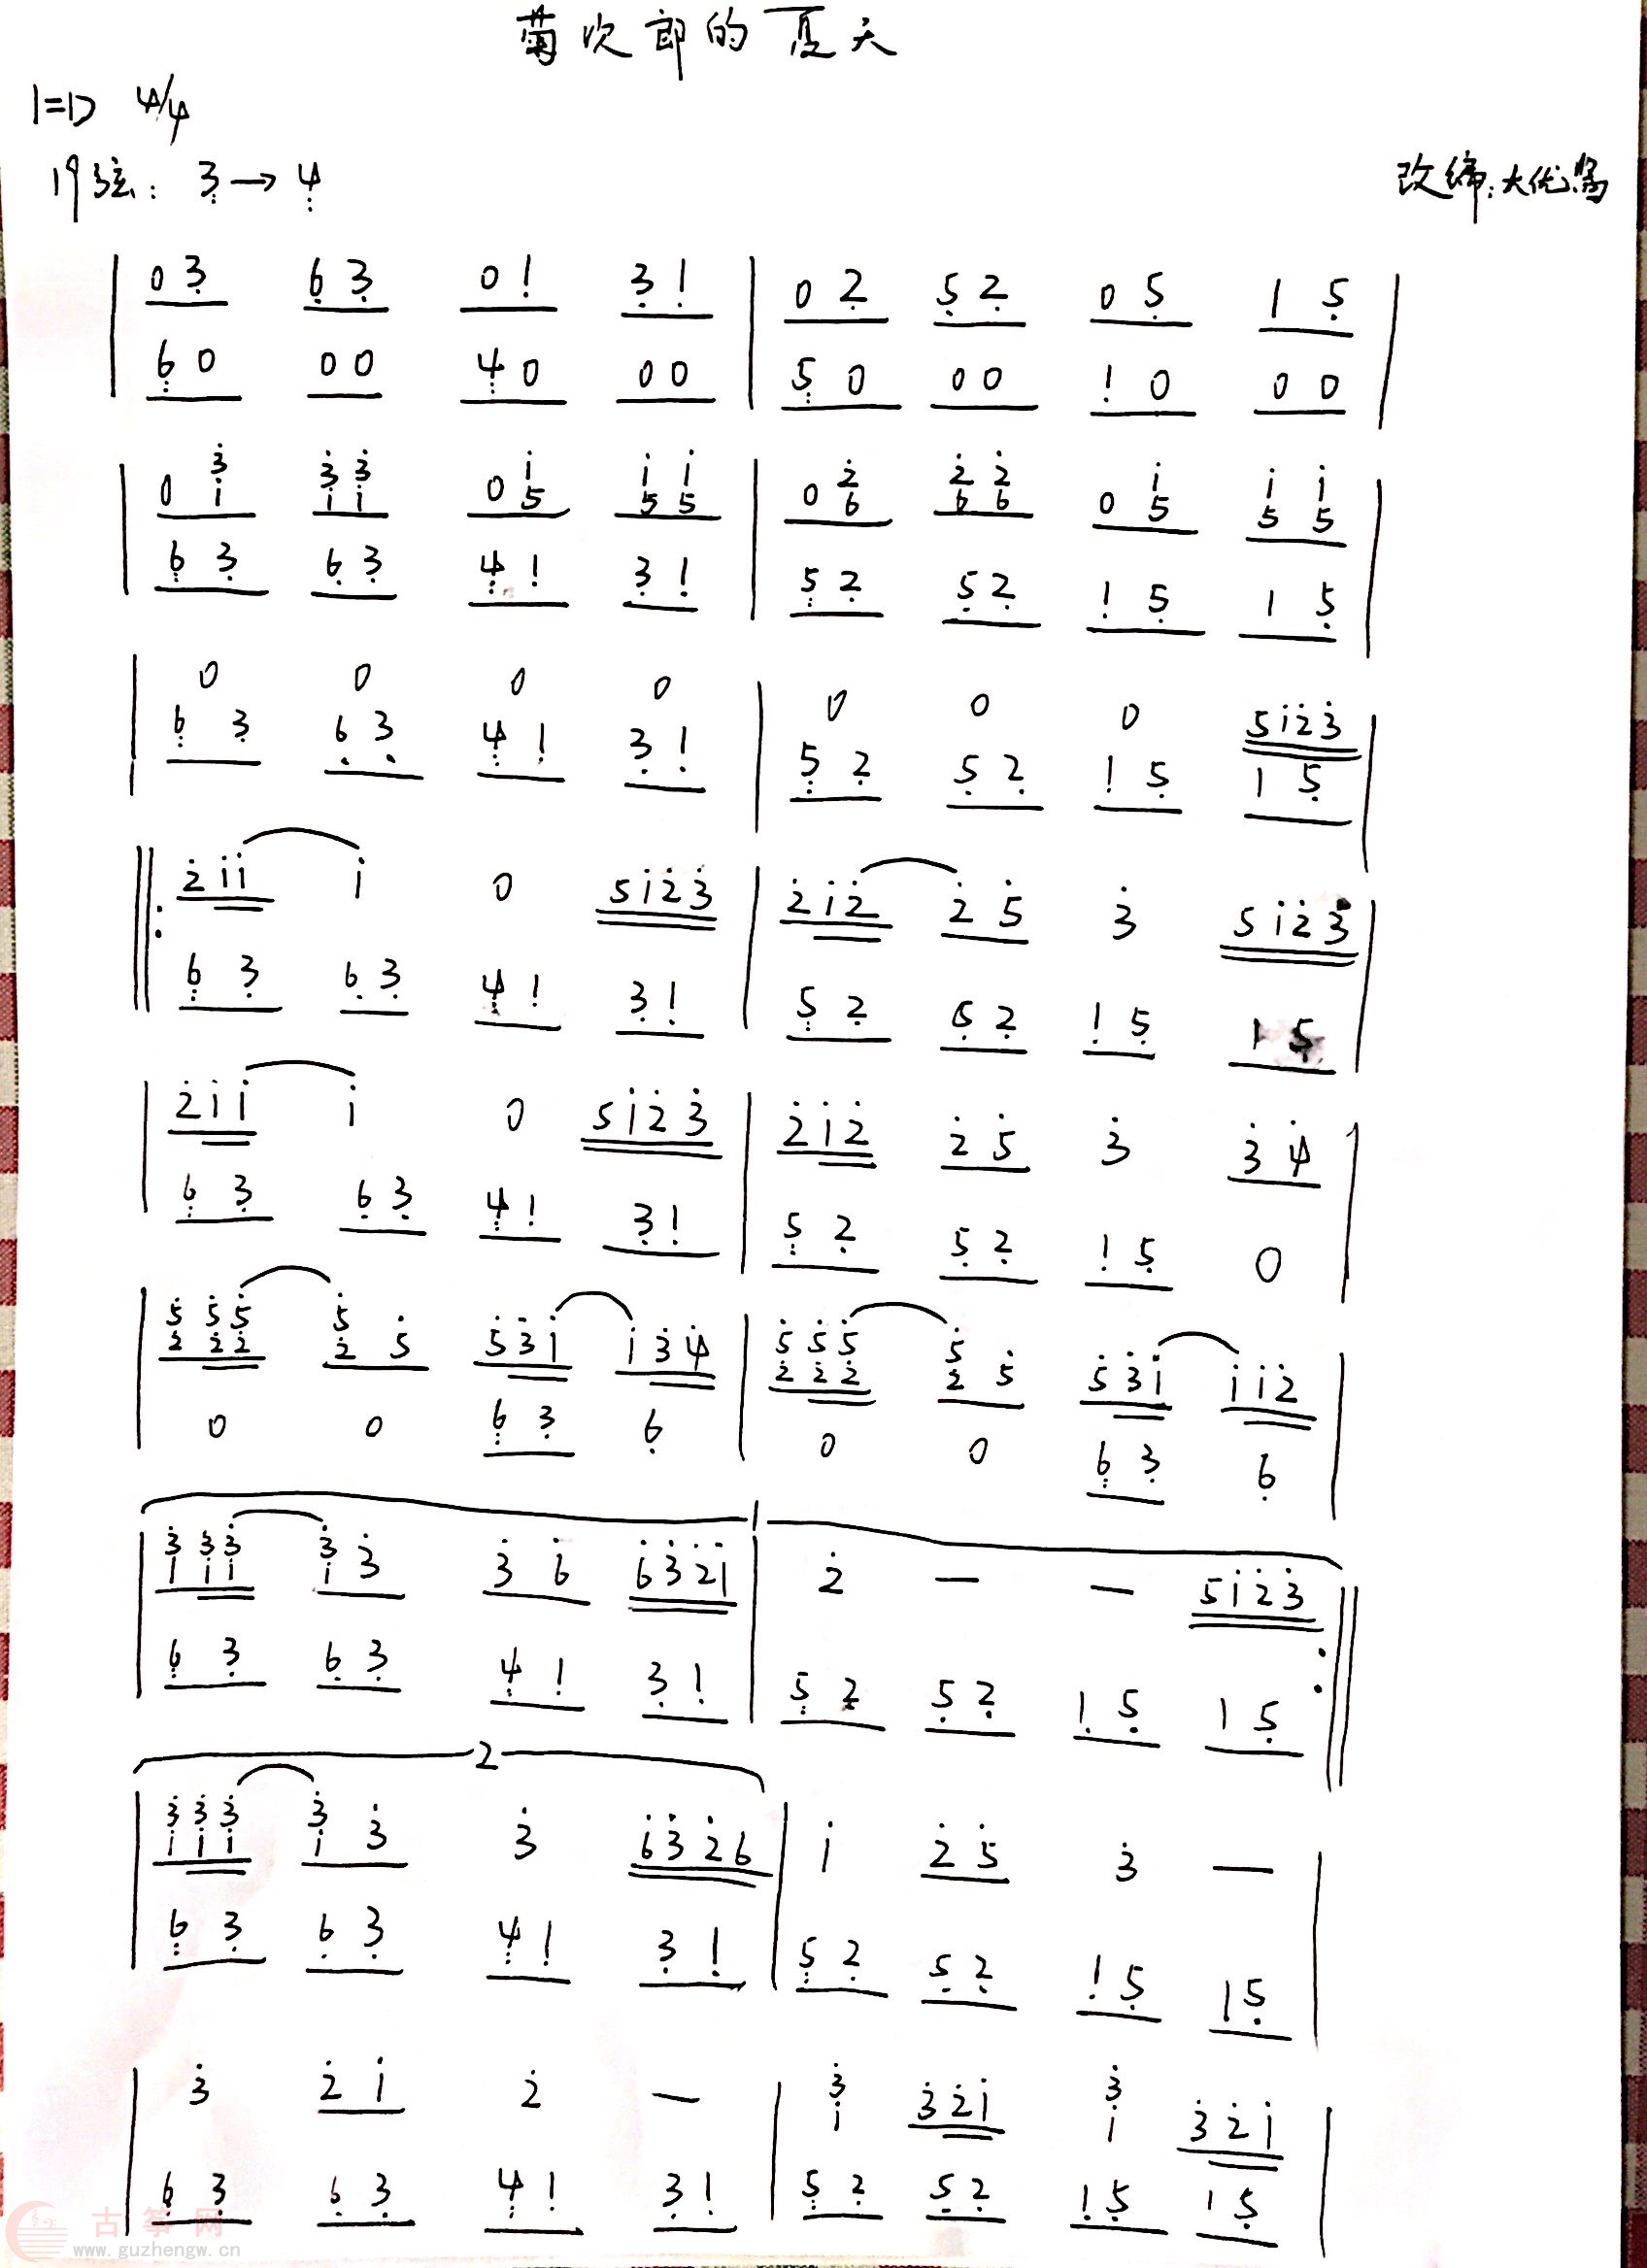 菊次郎的夏天
1=D 4/4
19弦: 3→4
改编:大优酱
0 3 6 3 0 1 3 1 | 0 2 5 2 0 5 1 5
6 0 0 0 4 0 0 0 | 5 0 0 0 1 0 0 0
3 3 3 1 1 1 | 2 2 2 1 1 1
0 1 1 1 0 5 5 5 | 0 6 6 6 0 5 5 5
6 3 6 3 4 1 3 1 | 5 2 5 2 1 5 1 5
0 0 0 0 | 0 0 0 5 1 2 3
6 3 6 3 4 1 3 1 | 5 2 5 2 1 5 1 5
2 1 1 1 0 5 1 2 3 | 2 1 2 2 5 3 5 1 2 3
6 3 6 3 4 1 3 1 | 5 2 5 2 1 5 1 5
2 1 1 1 0 5 1 2 3 | 2 1 2 2 5 3 3 4
6 3 6 3 4 1 3 1 | 5 2 5 2 1 5 0
5 5 5 5 | 5 5 5 5
2 2 2 2 5 5 3 1 1 3 4 | 2 2 2 2 5 5 3 1 1 1 2
0 0 6 3 6 | 0 0 6 3 6
1
3 3 3 3
1 1 1 1 3 3 6 6 3 2 1 | 2 — — 5 1 2 3
6 3 6 3 4 1 3 1 | 5 2 5 2 1 5 1 5
2
3 3 3 3
1 1 1 1 3 3 6 3 2 6 | 1 2 5 3 —
6 3 6 3 4 1 3 1 | 5 2 5 2 1 5 1 5
3 3
3 2 1 2 — | 1 3 2 1 1 3 2 1
6 3 6 3 4 1 3 1 | 5 2 5 2 1 5 1 5
古筝网
www.guzhengw.cn